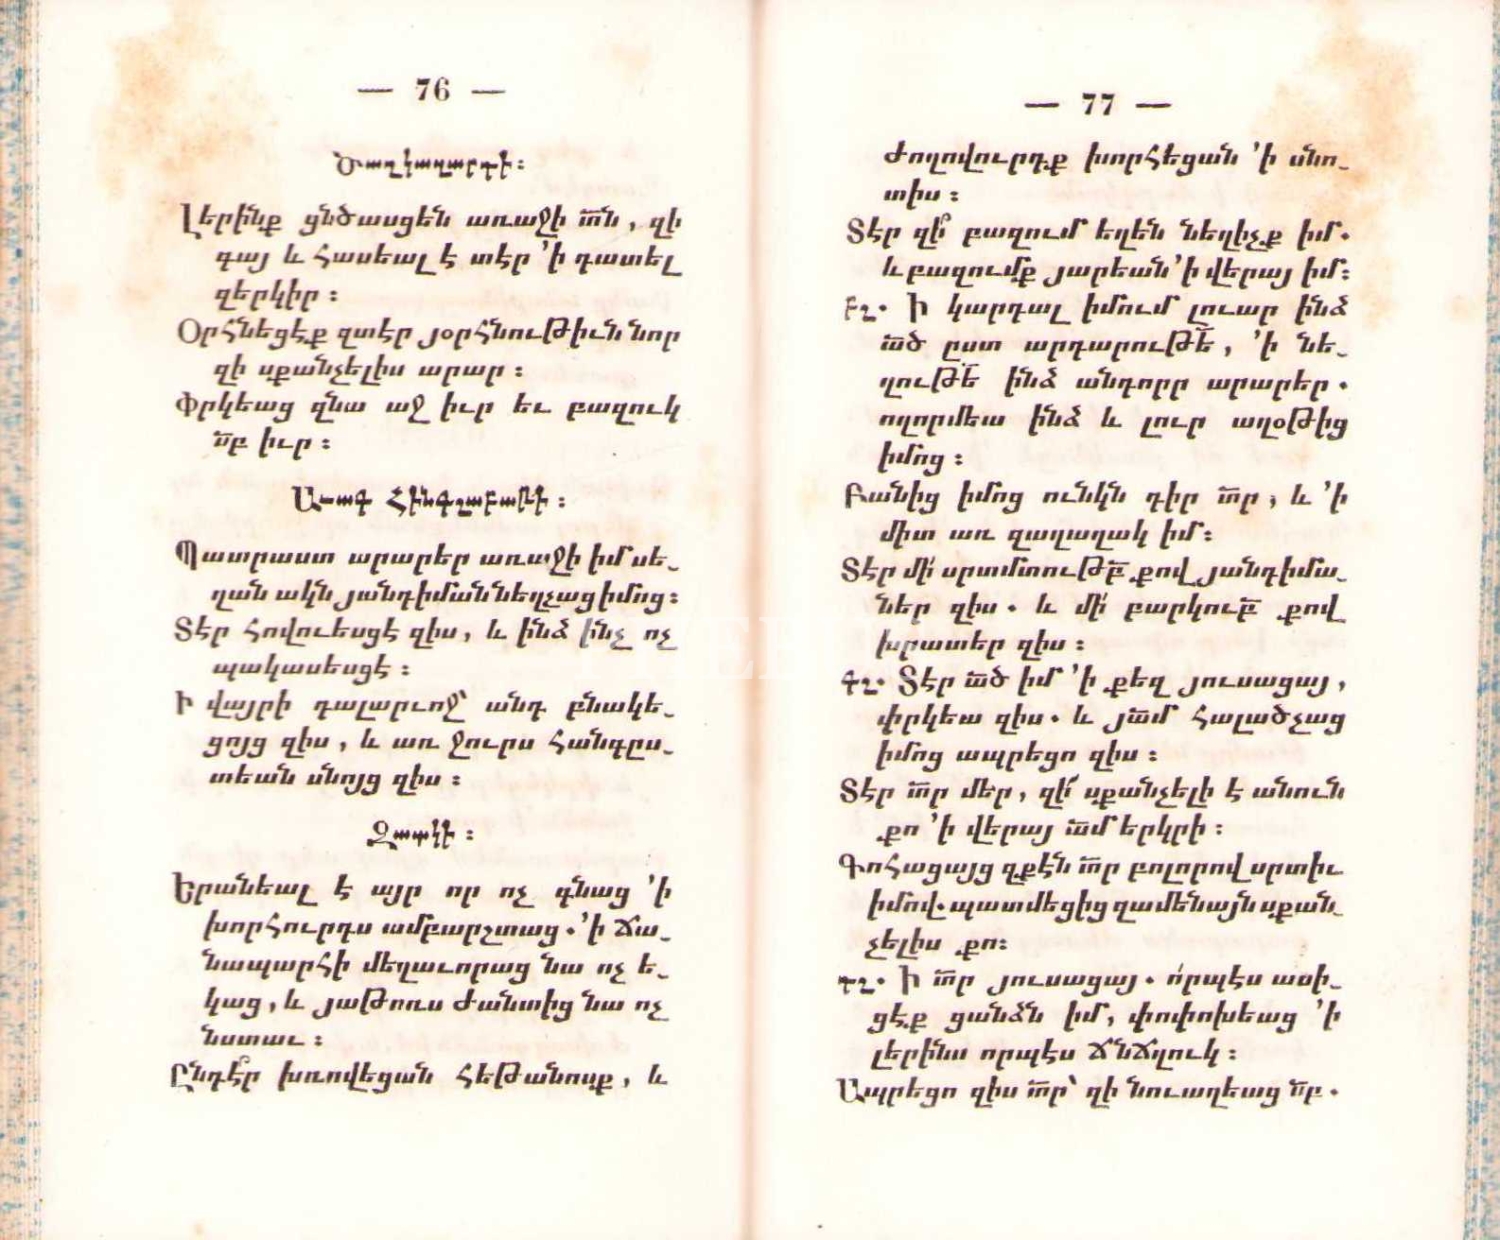 — 76 —
Ծաղկազարդի ։
Լերինք ցնծասցեն առաջի տն , զի
գայ և հասեալ է տէր ՚ի դատել
զերկիր ։
Օրհնեցէք զտէր յօրհնութիւն նոր
զի սքանչելիս արար ։
Փրկեաց զնա աջ իւր եւ բազուկ
սբ իւր ։
Աւագ Հինգշաբաթի ։
Պատրաստ արարեր առաջի իմ սե֊
ղան ակն յանդիման նեղչաց իմոց ։
Տէր հովուեսցէ զիս , և ինձ ինչ ոչ
պակասեսցէ ։
Ի վայրի դալարւոջ՝ անդ բնակե֊
ցոյց զիս , և առ ջուրս հանգըս֊
տեան սնոյց զիս ։
Զատկի ։
Երանեալ է այր որ ոչ գնաց ՚ի
խորհուրդս ամբարշտաց . ՚ի ճա֊
նապարհի մեղաւորաց նա ոչ ե֊
կաց , և յաթոռս ժանտից նա ոչ
նստաւ ։
Ընդէ՞ր խռովեցան հեթանոսք , և
— 77 —
ժողովուրդք խորհեցան ՚ի սնո֊
տիս ։
Տէր զի՞ բազում եղեն նեղիչք իմ .
և բազումք յարեան ՚ի վերայ իմ ։
բկ . Ի կարդալ իմում լուար ինձ
ած ըստ արդարութե , ՚ի նե֊
ղութե ինձ անդորր արարեր .
ողորմեա ինձ և լուր աղօթից
իմոց ։
Բանից իմոց ունկն դիր տր , և ՚ի
միտ առ զաղաղակ իմ ։
Տէր մի՛ սրտմտութբ քով յանդիմա֊
ներ զիս . և մի՛ բարկուբ քով
խրատեր զիս ։
գկ . Տէր ած իմ ՚ի քեզ յուսացայ ,
փրկեա զիս . և յամ հալածչաց
իմոց ապրեցո զիս ։
Տէր տր մեր , զի՛ սքանչելի է անուն
քո ՚ի վերայ ամ երկրի ։
Գոհացայց զքէն տր բոլորով սրտիւ
իմով . պատմեցից զամենայն սքան֊
չելիս քո ։
դկ . Ի տր յուսացայ . ո՛րպէս ասի֊
ցէք ցանձն իմ , փոփոխեաց ՚ի
լերինս որպէս ճնճղուկ ։
Ապրեցո զիս տր՝ զի նուաղեաց սբ .